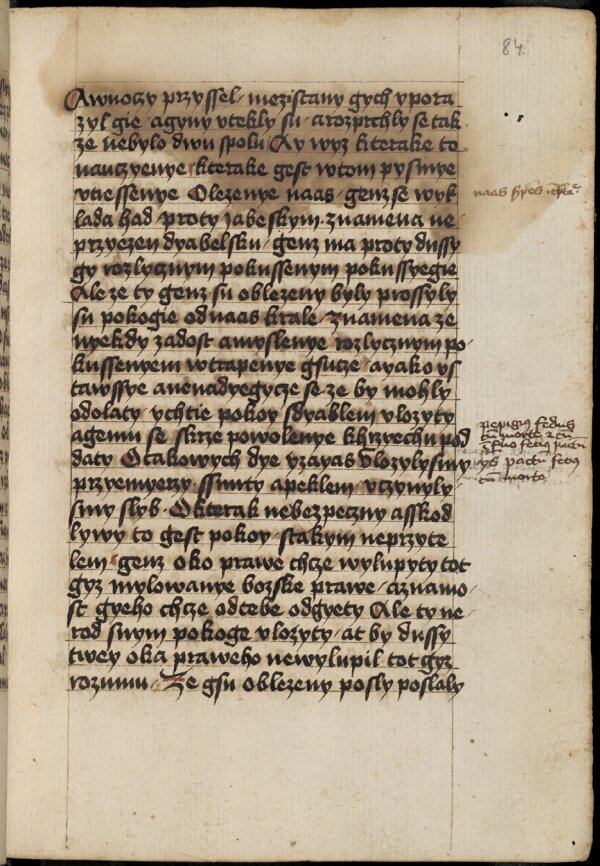 84
Awnoczy przyssel · mezistany gych vpora
zyl gie · agyny vtekly su · arozprchly se tak
ze nebylo dwu spolu Ay wyz kterake to
nauczyenye · kterake gest wtom pysmye
vtiessenye Oblezenye naas · genz se wyk
naas serpens
lada had · proty Jabeskym · znamena ne
przyezen dyabelsku · genz ma proty dussy
gy rozlycznym pokussenym pokussyegie
Ale ze ty genz su oblezeny byly prossyly
su pokogie od naas krale · znamena ze
nyekdy zadost amyslenye rozlycznym po
kussenyem wtrapenye gsucze · ayako vs
tawssye anenadyegycze se ze by mohly
odolaty · vchtie pokoy sdyablem vlozyty
pepigit fedus
agemu se skrze powolenye khrzyechu pod
cum morte
daty Otakowych dye yzayas Vlozylysmy
pactum
przyemyerzy · ssmrty apeklem · vczynyly
cum morte
smy slyb · Okterak nebezpeczny asskod
lywy to gest pokoy · stakym neprzyte
lem · genz oko prawe chcze wylupyty tot
gyz mylowanye bozske prawe · aznamo
st gyeho chcze odtebe odgyety Ale ty ne
rod snym pokoge vlozyty · at by dussy
twey oka praweho newylupil tot gyz
rozumu · Ze gsu oblezeny posly poslaly